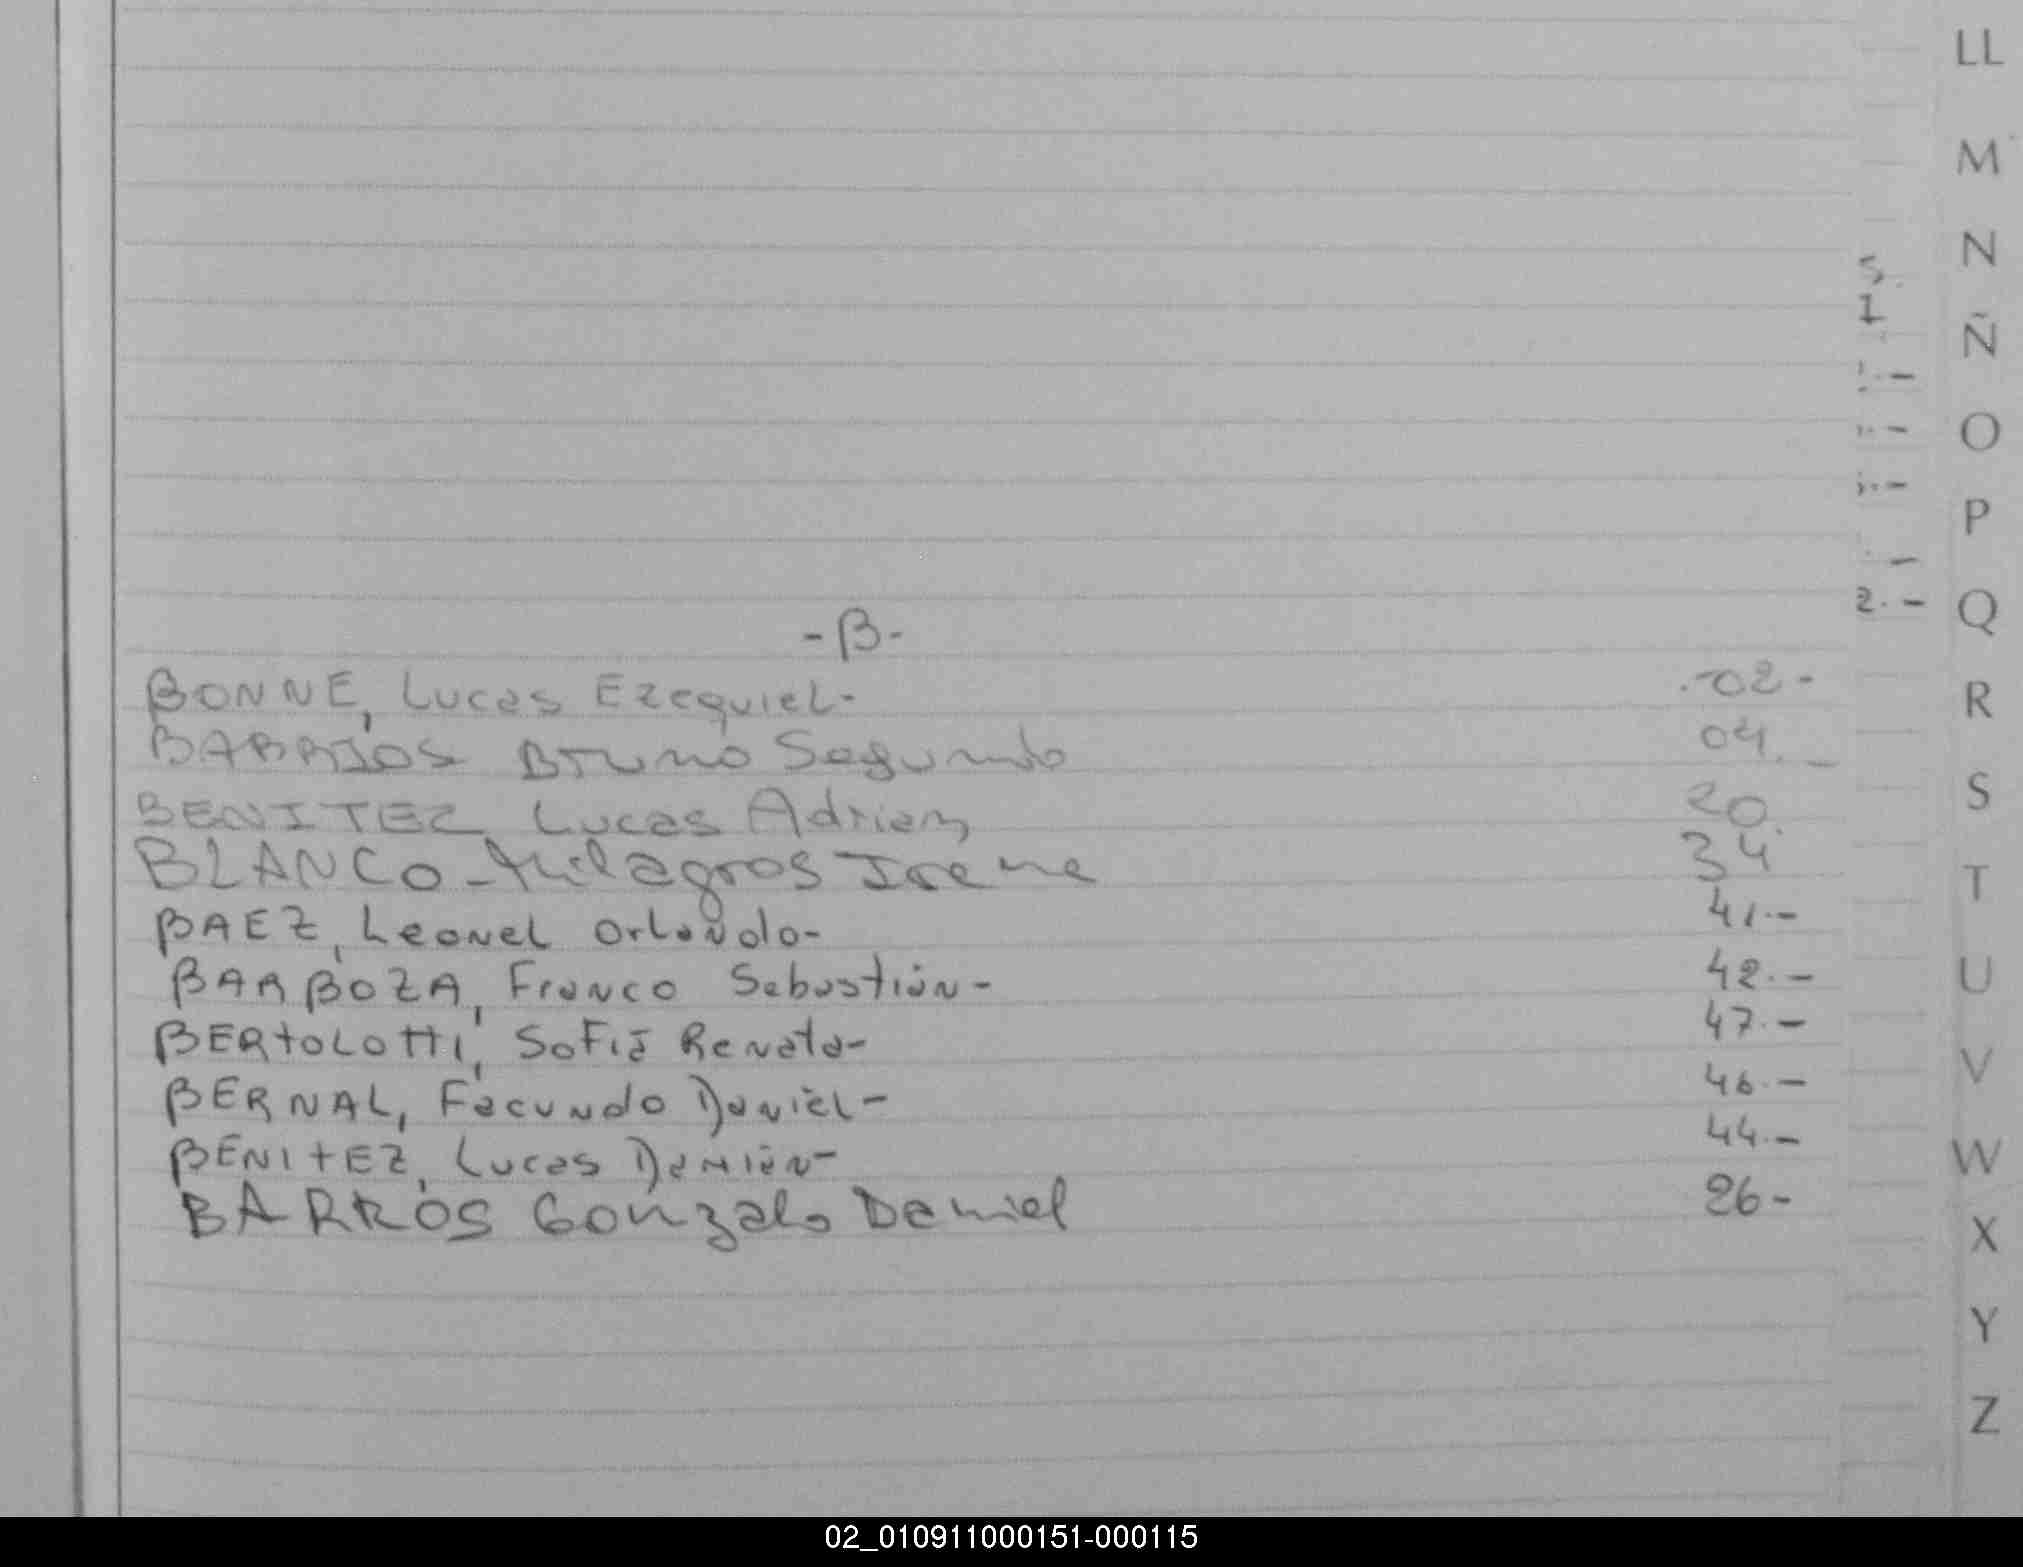 LL
M
N
Ñ
O
P
Q
R
S
T
U
V
W
X
Y
Z
-B-
BONNE, Lucas Ezequiel- 02-
BARRIOS Bruno Segundo 04.-
BENITEZ, Lucas Adrian 20.
BLANCO-Milagros Irene 34
BAEZ, Leonel Orlando- 41.-
BARBOZA, Franco Sebastián- 42.-
BERTOLOTTI, Sofia Renata- 47.-
BERNAL, Facundo Daniel- 46.-
BENITEZ, Lucas Damián- 44.-
BARROS Gonzalo Daniel 26-
02_010911000151-000115